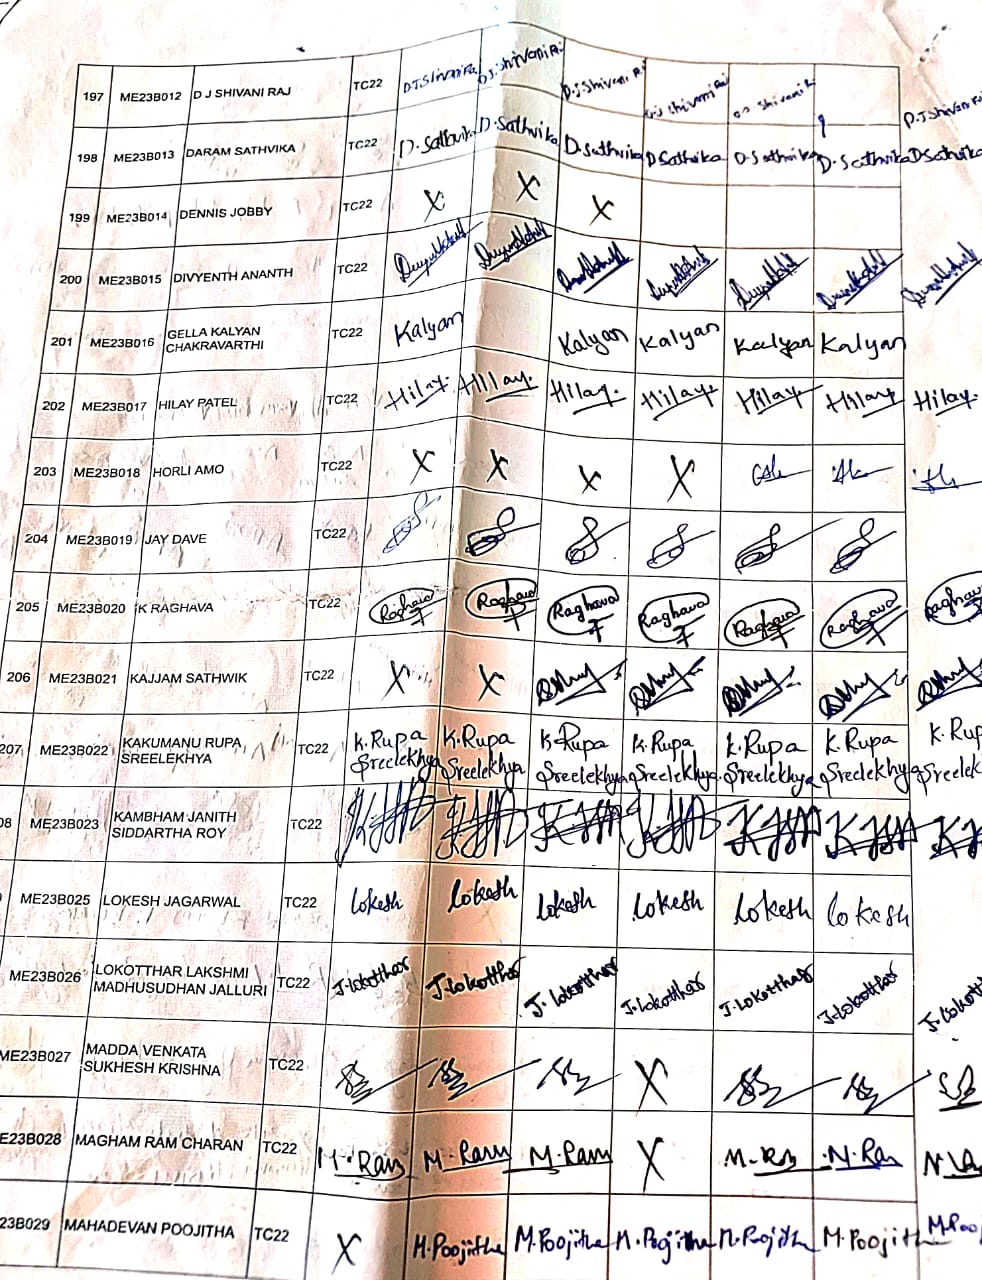 197 ME23B012 D J SHIVANI RAJ TC22 D.J.Shivani Raj D.J.Shivani Raj D.J.Shivani R D.J.Shivani R
198 ME23B013 DARAM SATHVIKA TC22 D. Sathvika D. Sathvika D. Sathvika D Sathvika D. Sathvika D. Sathvika D Sathvika
199 ME23B014 DENNIS JOBBY TC22 X X X
200 ME23B015 DIVYENTH ANANTH TC22
201 ME23B016 GELLA KALYAN CHAKRAVARTHI TC22 Kalyan Kalyan Kalyan Kalyan Kalyan
202 ME23B017 HILAY PATEL TC22 Hilay Hilay Hilay Hilay Hilay Hilay Hilay
203 ME23B018 HORLI AMO TC22 X X X X
204 ME23B019 JAY DAVE TC22
205 ME23B020 K RAGHAVA TC22 Raghava Raghava Raghava Raghava Raghava Raghava Raghava
206 ME23B021 KAJJAM SATHWIK TC22 X X
207 ME23B022 KAKUMANU RUPA SREELEKHYA TC22 K.Rupa Sreelekhya K.Rupa Sreelekhya K.Rupa Sreelekhya K.Rupa Sreelekhya K.Rupa Sreelekhya K.Rupa Sreelekhya K.Rup Sreelek
08 ME23B023 KAMBHAM JANITH SIDDARTHA ROY TC22
ME23B025 LOKESH JAGARWAL TC22 Lokesh Lokesh Lokesh Lokesh Lokesh Lokesh
ME23B026 LOKOTTHAR LAKSHMI MADHUSUDHAN JALLURI TC22 J.Lokotthar J.Lokotthar J.Lokotthar J.Lokotthar J.Lokotthar J.Lokotthar J.Lokotth
ME23B027 MADDA VENKATA SUKHESH KRISHNA TC22 X
E23B028 MAGHAM RAM CHARAN TC22 M.Ram M.Ram M.Ram X M.Ram M.Ram
23B029 MAHADEVAN POOJITHA TC22 X M.Poojitha M.Poojitha M.Poojitha M.Poojitha M.Poojitha M.Pooj